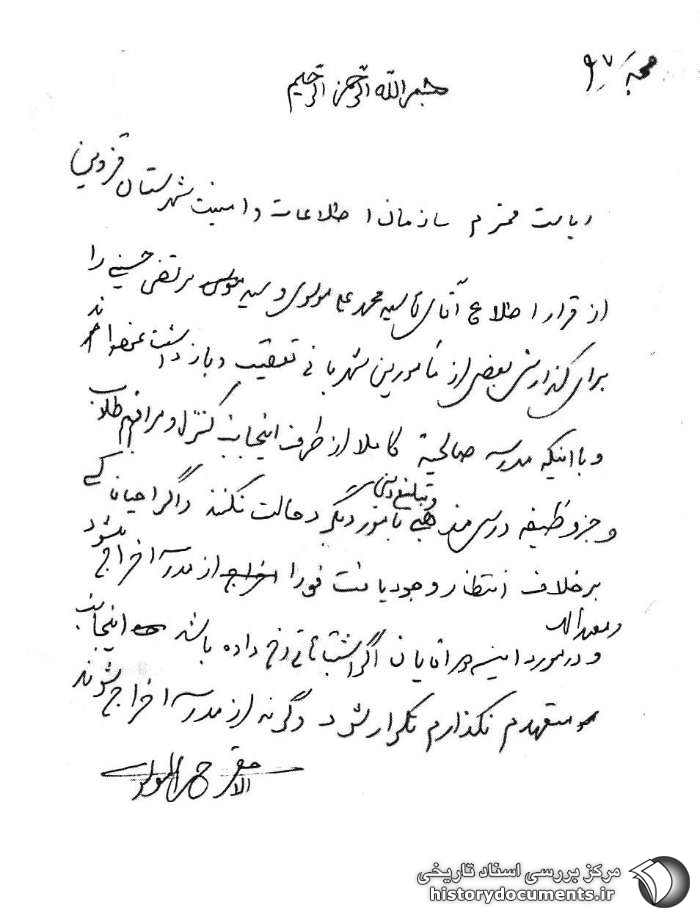 بسم الله الرحمن الرحیم
ریاست محترم سازمان اطلاعات و امنیت شهرستان قزوین
از قرار اطلاع آقای سید محمد علی مولوی و سید مرتضی حسینی را
برای گذارش بعضی از مأمورین شهربانی تعقیب و بازداشت
و با اینکه مدرسه صالحیة کاملا از طرف اینجانب کنترل و مراقبم طلاب
و جز وظیفه درس مذهبی و تبلیغ دینی بامور دیگر دخالت نکنند و اگر احیانا کسی
برخلاف انتظار وجود یافت فورا از مدرسه اخراج میشود
و در مورد این آقایان اگر اشتباهی رخ داده باشد اینجانب
متعهدم نگذارم تکرار شود وگرنه از مدرسه اخراج شوند
الاحقر
مرکز بررسی اسناد تاریخی
historydocuments.ir